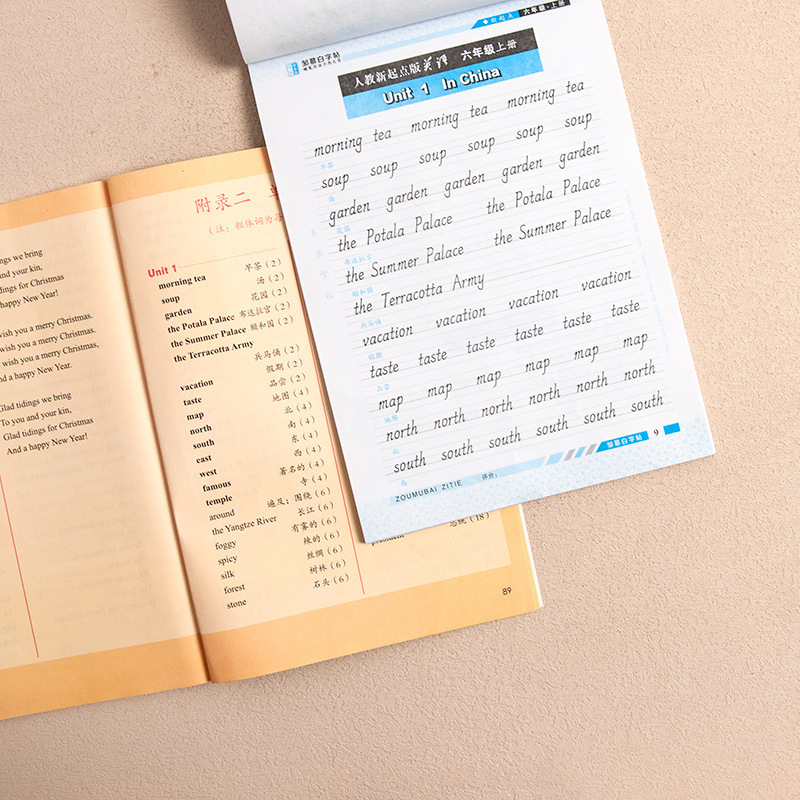 ngs we bring
nd your kin,
dings for Christmas
happy New Year!
wish you a merry Christmas.
wish you a merry Christmas.
wish you a merry Christmas,
nd a happy New Year.
Glad tidings we bring
To you and your kin,
Glad tidings for Christmas
And a happy New Year!
附录二
Unit 1
morning tea 早茶 (2)
soup 汤 (2)
garden 花园 (2)
the Potala Palace 布达拉宫 (2)
the Summer Palace 颐和园 (2)
the Terracotta Army
兵马俑 (2)
vacation 假期 (2)
taste 品尝 (2)
map 地图 (4)
north 北 (4)
south 南 (4)
east 东 (4)
west 西 (4)
famous 著名的 (4)
temple 寺 (4)
around 遍及；围绕 (6)
the Yangtze River 长江 (6)
foggy 有雾的 (6)
spicy 辣的 (6)
silk 丝绸 (6)
forest 树林 (6)
stone 石头 (6)
(18)
89
新起点 六年级·上册
邹慕白字帖
人教新起点版英语 六年级上册
Unit 1 In China
morning tea morning tea morning tea
早茶
soup soup soup soup soup soup
汤
garden garden garden garden garden
花园
the Potala Palace the Potala Palace
布达拉宫
the Summer Palace the Summer Palace
颐和园
the Terracotta Army
兵马俑
vacation vacation vacation vacation
假期
taste taste taste taste taste taste
品尝
map map map map map map
地图
north north north north north north
北
south south south south south south
南
ZOUMUBAI ZITIE 评分：
邹慕白字帖 9